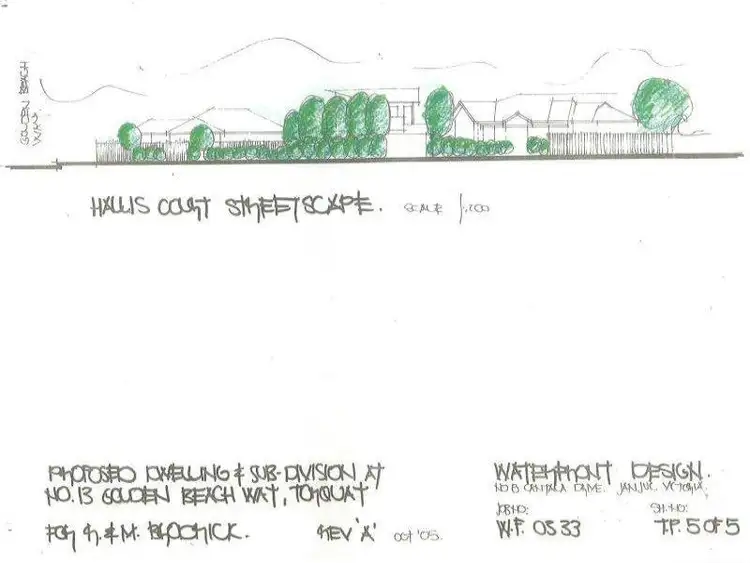 GOLDEN BEACH
WAY.
HALLIS COURT STREETSCAPE. SCALE 1:200
PROPOSED DWELLING & SUB-DIVISION AT
NO.13 GOLDEN BEACH WAY, TORQUAY
FOR R. & M. BRODRICK.
REV 'A' OCT '05.
WATERFRONT DESIGN.
NO 8 DRIVE. JAN JUC. VICTORIA.
JOB NO: SHT. NO:
W.F. 0533 T.P. 5 OF 5